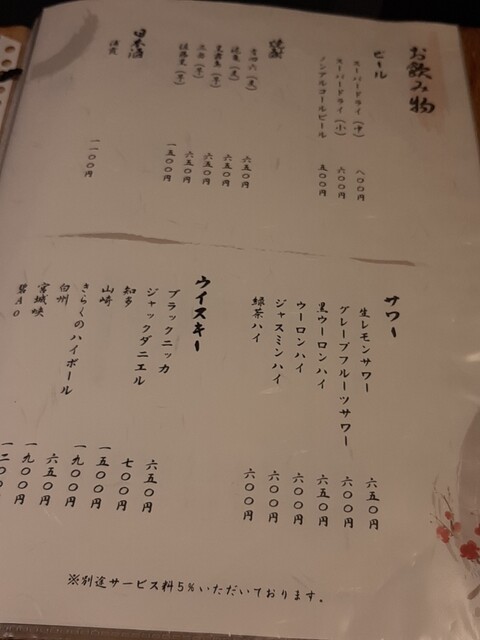 お飲み物
ビール
スーパードライ(中) 八〇〇円
スーパードライ(小) 六〇〇円
ノンアルコールビール 五〇〇円
焼酎
吉四六(麦) 六五〇円
(麦) 六五〇円
黒霧島(芋) 六五〇円
三岳(芋) 六五〇円
佐藤黒(芋) 一五〇〇円
日本酒
一一〇〇円
サワー
生レモンサワー 六五〇円
グレープフルーツサワー 六〇〇円
黒ウーロンハイ 六五〇円
ウーロンハイ 六〇〇円
ジャスミンハイ 六〇〇円
緑茶ハイ 六〇〇円
ウイスキー
ブラックニッカ 六五〇円
ジャックダニエル 七〇〇円
知多 一五〇〇円
山崎 一九〇〇円
きらくのハイボール 六五〇円
白州 一九〇〇円
宮城峡 一二〇〇
碧AO
※別途サービス料5%いただいております。